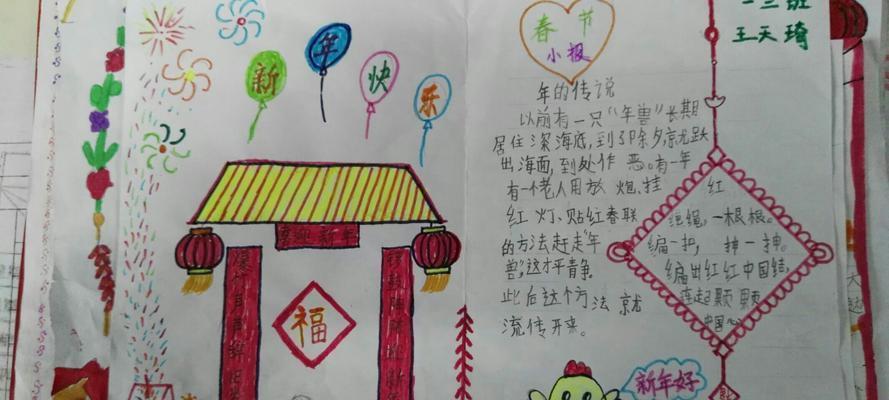 新年快乐
喜迎新年
福
春节
小报
一三班
王天琦
年的传说
以前有一只“年兽”长期
居住深海底,到了除夕京尤跃
出海面,到处作恶。有一年
有一个老人用放炮、挂
红灯、贴红春联
的方法赶走“年
兽”,这才平静。
此后这个方法就
流传开来。
红
绳,一根根。
编一护,抻一抻。
编出红红中国结,
连起颗颗
中国心
新年好